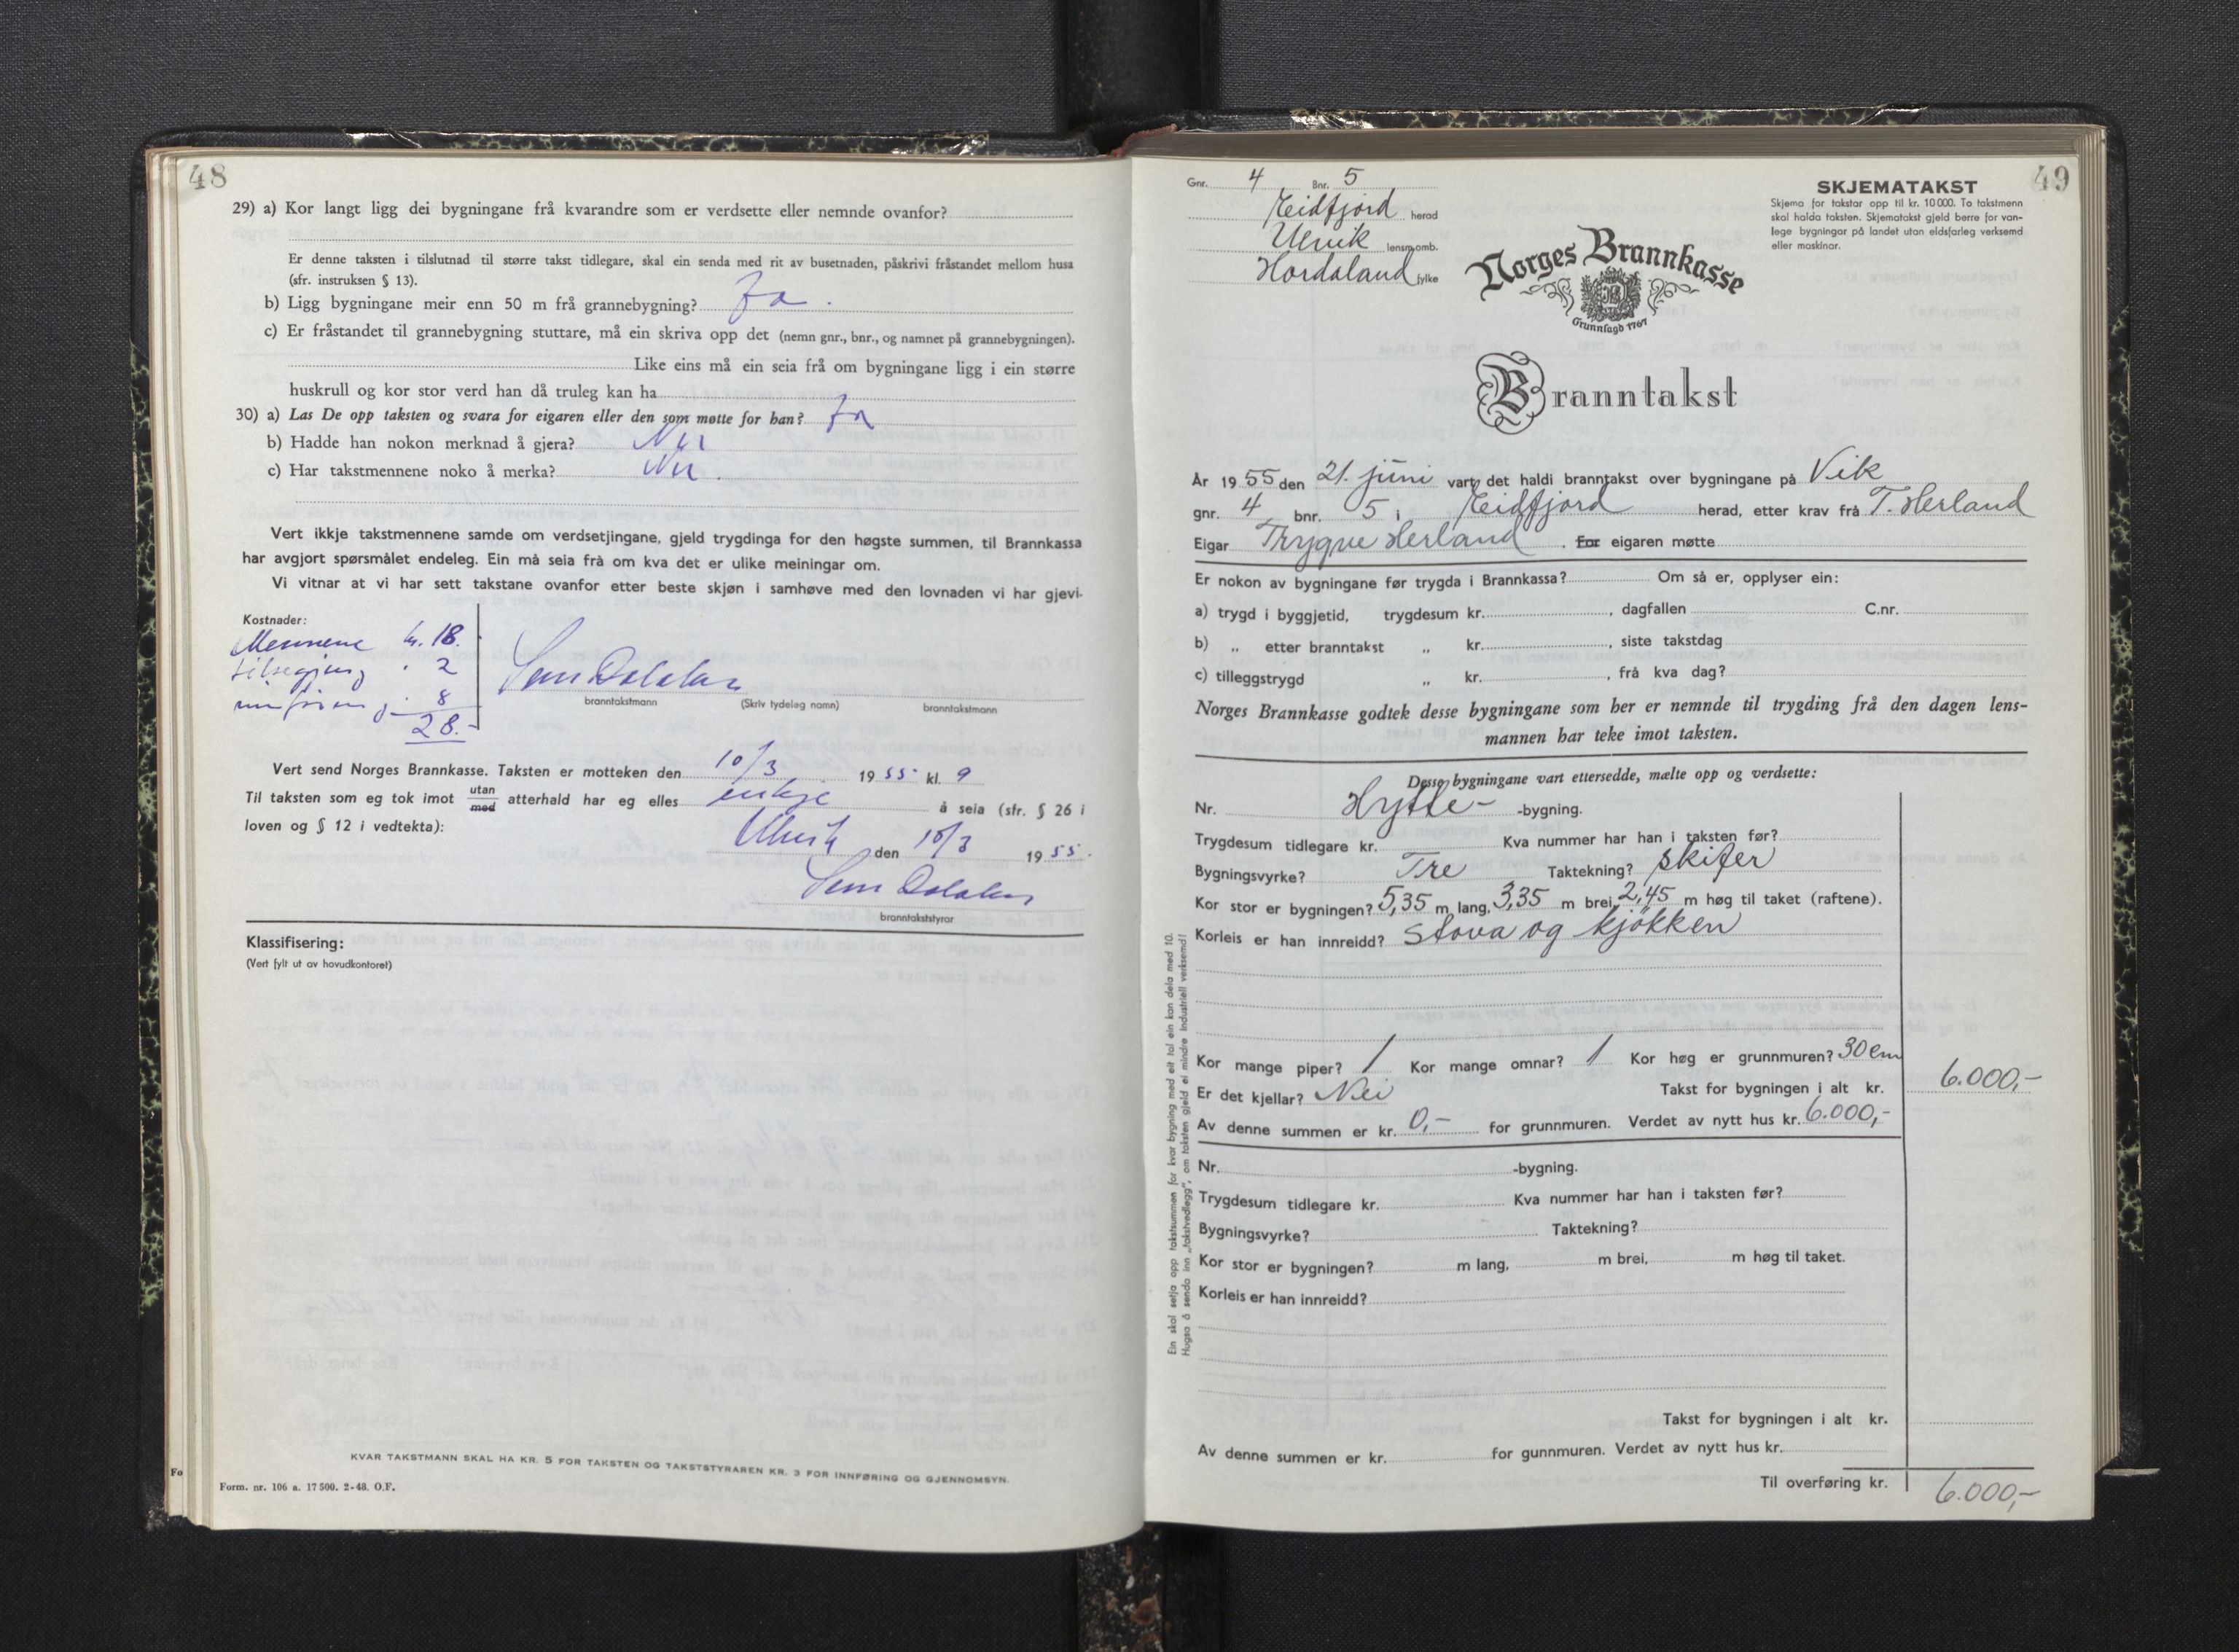 48
29) a) Kor langt ligg dei bygningane frå kvarandre som er verdsette eller nemnde ovanfor?
Er denne taksten i tilslutnad til større takst tidlegare, skal ein senda med rit av busetnaden, påskrivi fråstandet mellom husa
(sfr. instruksen § 13).
b) Ligg bygningane meir enn 50 m frå grannebygning? Ja.
c) Er fråstandet til grannebygning stuttare, må ein skriva opp det (nemn gnr., bnr., og namnet på grannebygningen).
Like eins må ein seia frå om bygningane ligg i ein større
huskrull og kor stor verd han då truleg kan ha
30) a) Las De opp taksten og svara for eigaren eller den som møtte for han? Ja
b) Hadde han nokon merknad å gjera? Nei
c) Har takstmennene noko å merka? Nei.
Vert ikkje takstmennene samde om verdsetjingane, gjeld trygdinga for den høgste summen, til Brannkassa
har avgjort spørsmålet endeleg. Ein må seia frå om kva det er ulike meiningar om.
Vi vitnar at vi har sett takstane ovanfor etter beste skjøn i samhøve med den lovnaden vi har gjevi.
Kostnader:
Mennene kr. 18.
2
innföring 8
28.-
branntakstmann (Skriv tydeleg namn) branntakstmann
Vert send Norges Brannkasse. Taksten er motteken den 10/3 1955 kl. 9
Til taksten som eg tok imot utan med atterhald har eg elles inkje å seia (sfr. § 26 i
loven og § 12 i vedtekta):
Ulvik den 10/3 1955.
branntakststyrar
Klassifisering:
(Vert fylt ut av hovudkontoret)
KVAR TAKSTMANN SKAL HA KR. 5 FOR TAKSTEN OG TAKSTSTYRAREN KR. 3 FOR INNFØRING OG GJENNOMSYN.
Fo
Form. nr. 106 a. 17 500. 2-48. O.F.
49
Gnr. 4 Bnr. 5
Eidfjord herad
Ulvik lensm.omb.
Hordaland fylke
SKJEMATAKST
Skjema for takstar opp til kr. 10 000. To takstmenn
skal halda taksten. Skjematakst gjeld berre for van-
lege bygningar på landet utan eldsfarleg verksemd
eller maskinar.
Norges Brannkasse
Grunnlagd 1767
Branntakst
År 1955 den 21. juni vart det haldi branntakst over bygningane på Vik
gnr. 4 bnr. 5 i Eidfjord herad, etter krav frå T. Herland
Eigar Trygve Herland. For eigaren møtte
Er nokon av bygningane før trygda i Brannkassa? Om så er, opplyser ein:
a) trygd i byggjetid, trygdesum kr. , dagfallen C.nr.
b) „ etter branntakst „ kr. , siste takstdag
c) tilleggstrygd „ kr. , frå kva dag?
Norges Brannkasse godtek desse bygningane som her er nemnde til trygding frå den dagen lens-
mannen har teke imot taksten.
Desse bygningane vart ettersedde, mælte opp og verdsette:
Nr. Hytte- -bygning.
Trygdesum tidlegare kr. Kva nummer har han i taksten før?
Bygningsvyrke? Tre Taktekning? skifer
Kor stor er bygningen? 5,35 m lang, 3,35 m brei, 2,45 m høg til taket (raftene).
Korleis er han innreidd? Stova og kjøkken
Kor mange piper? 1 Kor mange omnar? 1 Kor høg er grunnmuren? 30 cm
Er det kjellar? Nei Takst for bygningen i alt kr. 6.000,-
Av denne summen er kr. 0,- for grunnmuren. Verdet av nytt hus kr. 6.000,-
Nr. -bygning.
Trygdesum tidlegare kr. Kva nummer har han i taksten før?
Bygningsvyrke? Taktekning?
Kor stor er bygningen? m lang, m brei, m høg til taket.
Korleis er han innreidd?
Takst for bygningen i alt kr.
Av denne summen er kr. for gunnmuren. Verdet av nytt hus kr.
Til overføring kr. 6.000,-
Ein skal setja opp takstsummen for kvar bygning med eit tal ein kan dela med 10.
Hugsa å senda inn „takstvedlegg”, om taksten gjeld ei mindre industriell verksemd!